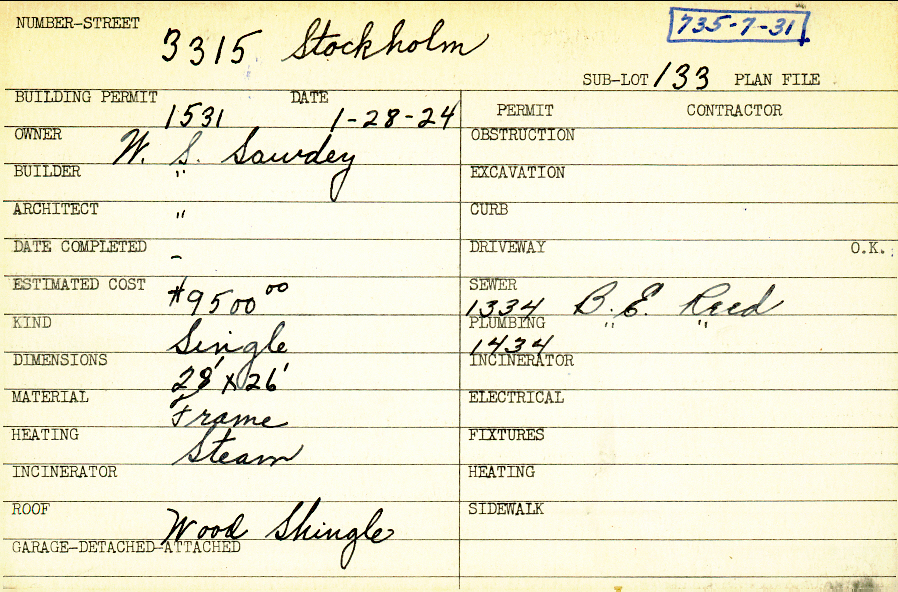 NUMBER-STREET 3315 Stockholm 735-7-31
SUB-LOT 133 PLAN FILE
BUILDING PERMIT 1531 DATE 1-28-24
PERMIT CONTRACTOR
OWNER W. S. Sawdey
OBSTRUCTION
BUILDER "
EXCAVATION
ARCHITECT "
CURB
DATE COMPLETED -
DRIVEWAY O.K.
ESTIMATED COST $9500 00
SEWER 1334 B. E. Reed
KIND Single
PLUMBING 1434 " "
DIMENSIONS 28' x 26'
INCINERATOR
MATERIAL Frame
ELECTRICAL
HEATING Steam
FIXTURES
INCINERATOR
HEATING
ROOF Wood Shingle
SIDEWALK
GARAGE-DETACHED-ATTACHED